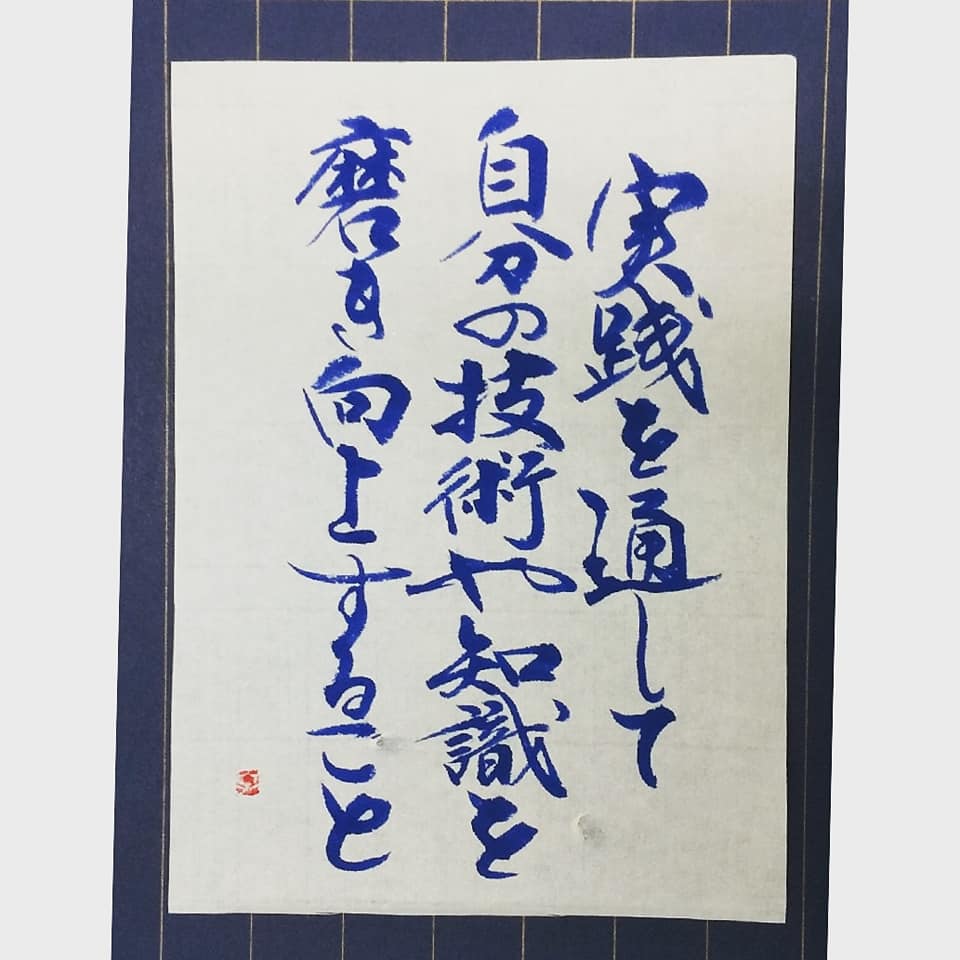 実践を通して
自分の技術や知識を
磨き向上すること